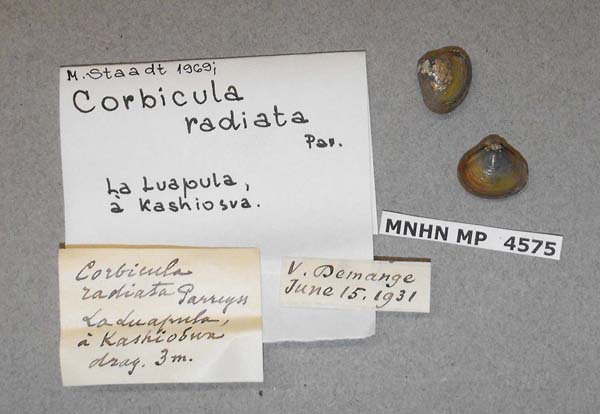 M. Staadt 1969;
Corbicula
radiata
Par.
La Luapula,
à Kashiosva.
MNHN MP 4575
Corbicula
radiata Parreyss
La Luapula,
à Kashiobwa
drag. 3 m.
V. Demange
June 15. 1931